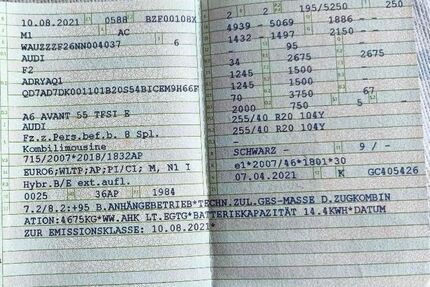 10.08.2021 0588 BZF00108X
M1 AC
WAUZZZF26NN004037 6
AUDI
F2
ADRYAQ1
QD7AD7DK001101B20S54BICEM9H66F
A6 AVANT 55 TFSI E
AUDI
Fz.z.Pers.bef.b. 8 Spl.
Kombilimousine
715/2007*2018/1832AP
EURO6;WLTP;AP;PI/CI; M, N1 I
Hybr.B/E ext.aufl.
0025 36AP 1984
2 2 195/5250 250
4939 - 5069 1886 -
1432 -1497 2150 -
- 95 -
34 2675 2675
1245 1500 -
1245 1500 -
70 3750 67
2000 750 5 -
255/40 R20 104Y
255/40 R20 104Y
-
SCHWARZ - 9 / -
e1*2007/46*1801*30
07.04.2021 K GC405426
7.2/8.2:+95 B.ANHÄNGEBETRIEB*TECHN.ZUL.GES-MASSE D.ZUGKOMBIN
ATION:4675KG*WW.AHK LT.EGTG*BATTERIEKAPAZITÄT 14.4KWH*DATUM
ZUR EMISSIONSKLASSE: 10.08.2021*